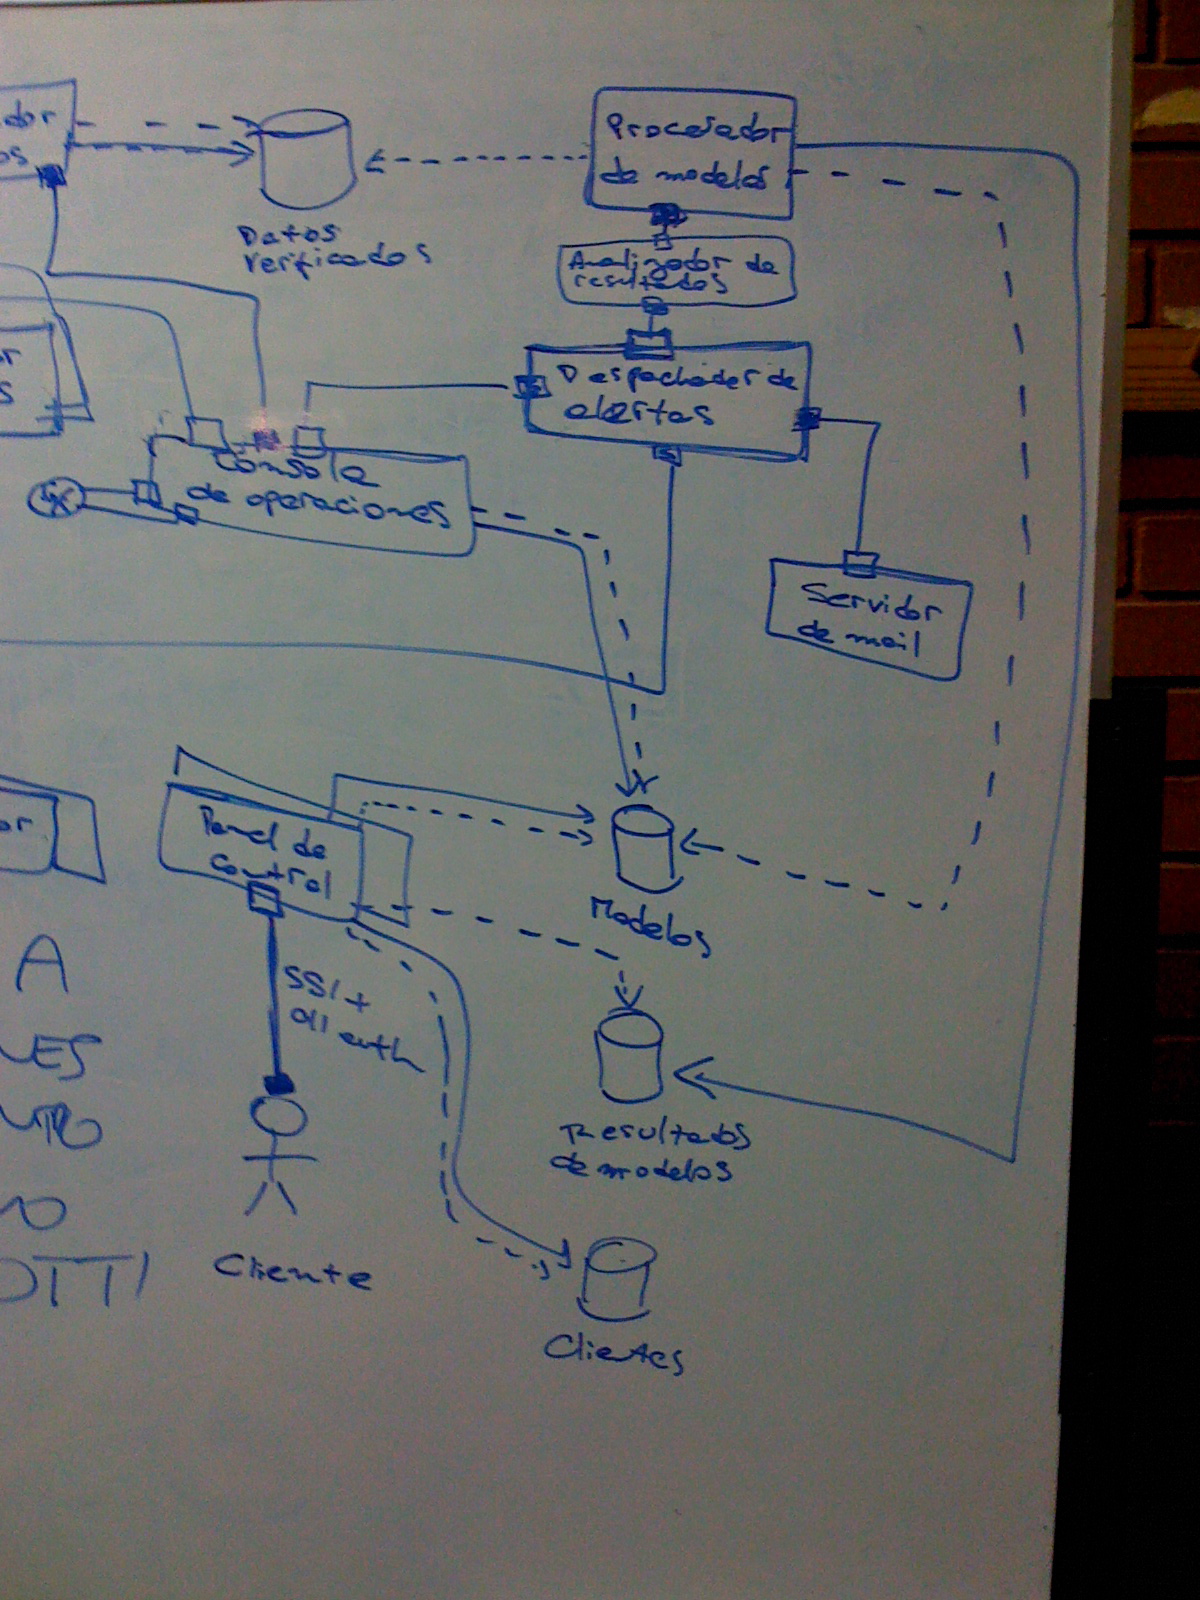 dor
os
Datos
verificados
Procesador
de modelos
Analizador de
resultados
Despachador de
alertas
or
s
Consola
de operaciones
Servidor
de mail
or
Panel de
control
Modelos
A
SSL +
auth
Resultados
de modelos
Cliente
Clientes